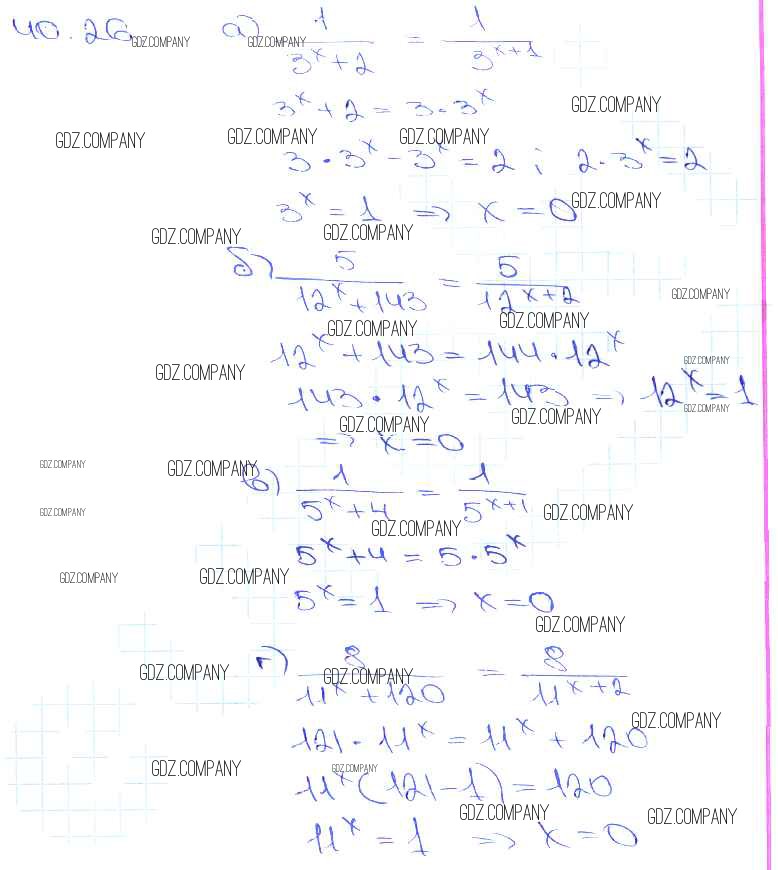 40.26 а) 1/(3^x+2) = 1/3^(x+1)
GDZ.COMPANY GDZ.COMPANY
3^x + 2 = 3·3^x GDZ.COMPANY
GDZ.COMPANY GDZ.COMPANY GDZ.COMPANY
3·3^x − 3^x = 2 ; 2·3^x = 2
3^x = 1 => x = 0 GDZ.COMPANY
GDZ.COMPANY GDZ.COMPANY
б) 5/(12^x+143) = 5/12^(x+2)
GDZ.COMPANY
GDZ.COMPANY GDZ.COMPANY
12^x + 143 = 144·12^x GDZ.COMPANY
GDZ.COMPANY
143·12^x = 143 => 12^x = 1
GDZ.COMPANY GDZ.COMPANY GDZ.COMPANY
=> x = 0
GDZ.COMPANY GDZ.COMPANY
в) 1/(5^x+4) = 1/5^(x+1)
GDZ.COMPANY GDZ.COMPANY GDZ.COMPANY
5^x + 4 = 5·5^x
GDZ.COMPANY GDZ.COMPANY
5^x = 1 => x = 0
GDZ.COMPANY
г) 8/(11^x+120) = 8/11^(x+2)
GDZ.COMPANY GDZ.COMPANY
GDZ.COMPANY
121·11^x = 11^x + 120
GDZ.COMPANY GDZ.COMPANY
11^x(121−1) = 120
GDZ.COMPANY GDZ.COMPANY
11^x = 1 => x = 0